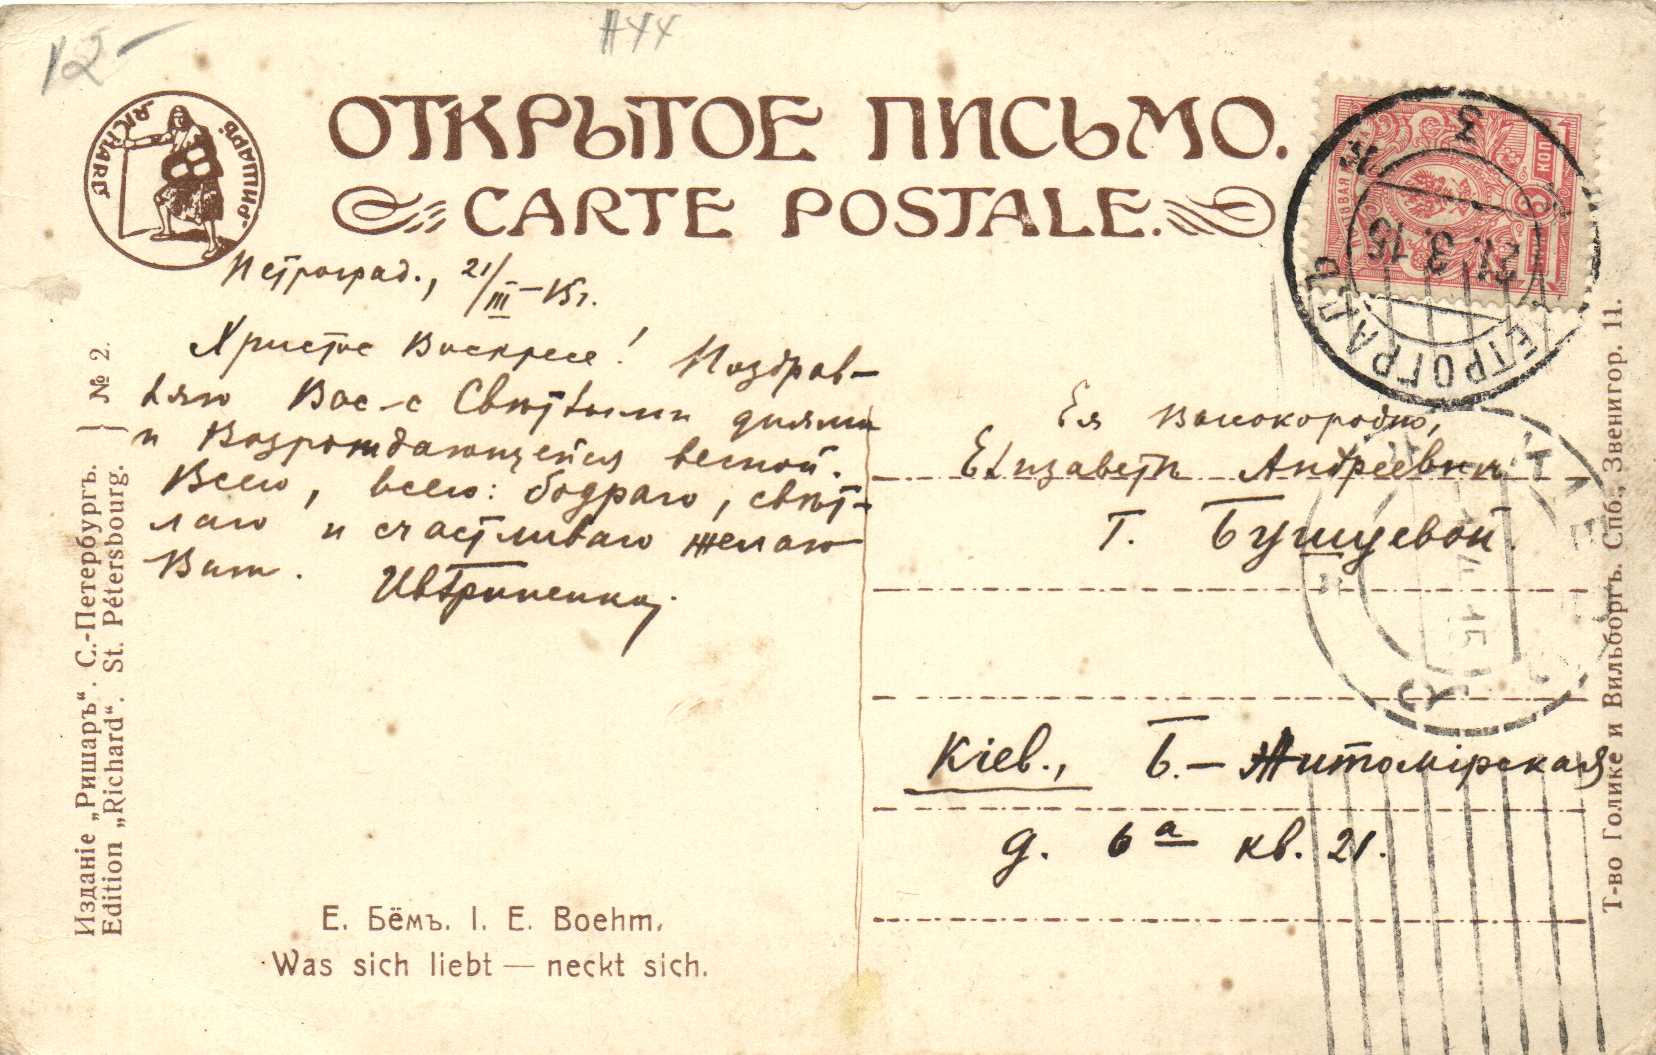 12-
"RICHARD" "РИШАРЪ"
ОТКРЫТОЕ ПИСЬМО.
CARTE POSTALE.
3 КОП
ПЕТРОГРАДЪ
21.3.15
3
Петроград., 21/III-15г.
Христос Воскресе! Поздрав-
ляю Вас с Свѣтлыми днями
и Возрождающейся весной.
Всего, всего: бодраго, свѣт-
лаго и счастливаго желаю
Вам.
Ея Высокородию,
Елизаветѣ Андреевнѣ
Г. Бушуевой.
Кіев., Б.-Житомірская
д. 6а кв. 21.
Изданіе „Ришаръ“. С.-Петербургъ.
Edition „Richard“. St. Pétersbourg. } № 2.
Е. Бёмъ. I. E. Boehm.
Was sich liebt — neckt sich.
Т-во Голике и Вильборгъ. Спб., Звенигор. 11.